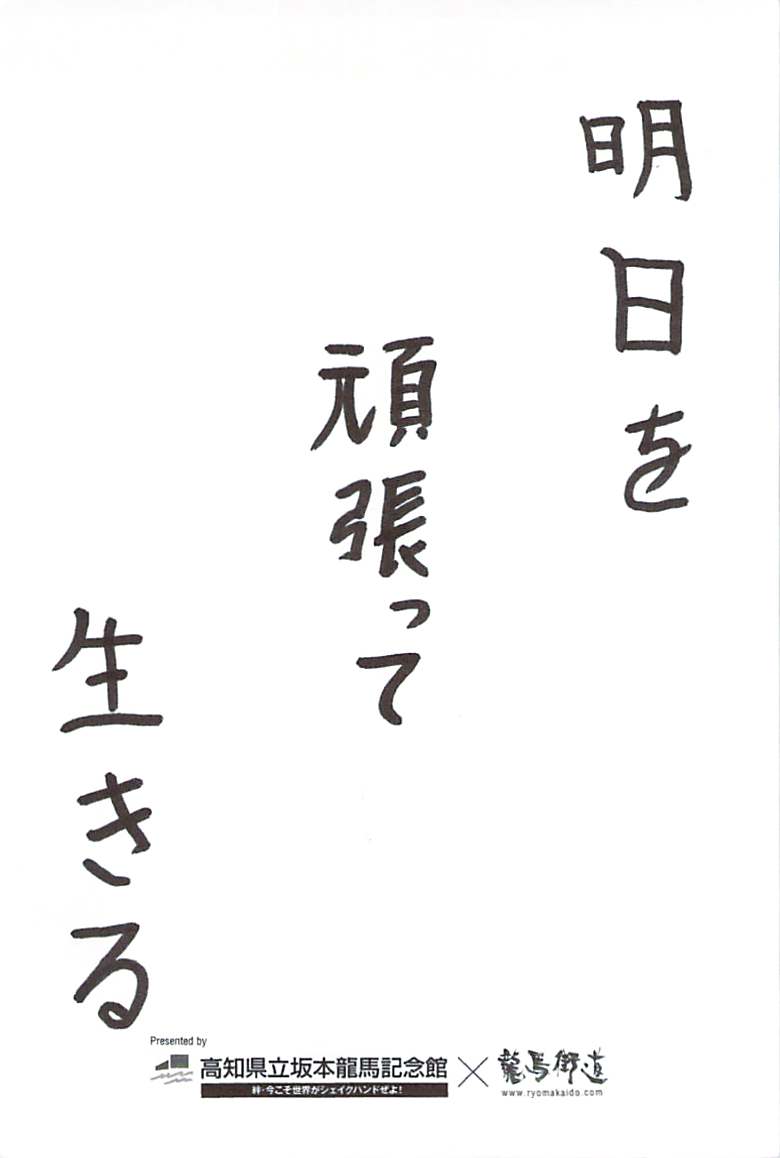 明日を
頑張って
生きる
Presented by
高知県立坂本龍馬記念館
絆・今こそ世界がシェイクハンドぜよ!
×
龍馬街道
www.ryomakaido.com